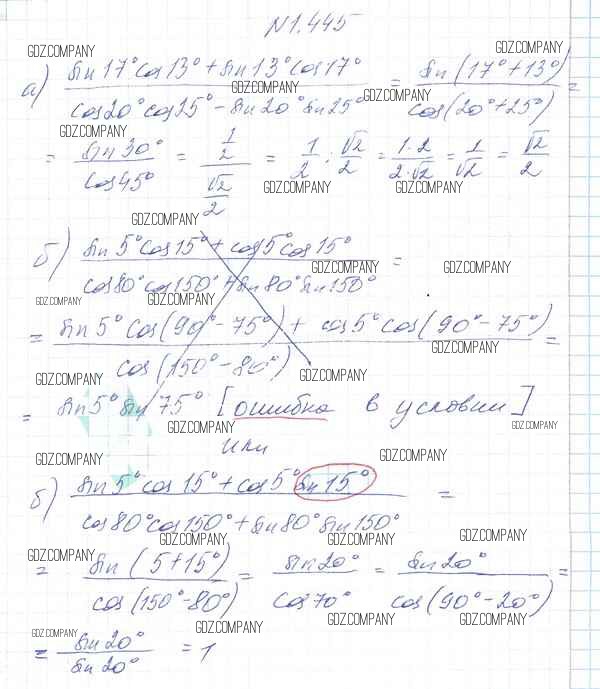 N1.445
GDZ.COMPANY GDZ.COMPANY
а) (sin 17° cos 13° + sin 13° cos 17°) / (cos 20° cos 25° - sin 20° sin 25°) = sin (17° + 13°) / cos (20° + 25°) =
GDZ.COMPANY GDZ.COMPANY GDZ.COMPANY
= sin 30° / cos 45° = (1/2) / (√2/2) = 1/2 : √2/2 = 1·2 / 2·√2 = 1/√2 = √2/2
GDZ.COMPANY GDZ.COMPANY
GDZ.COMPANY
б) (sin 5° cos 15° + cos 5° cos 15°) / (cos 80° cos 150° + sin 80° sin 150°) =
GDZ.COMPANY GDZ.COMPANY
GDZ.COMPANY GDZ.COMPANY
= (sin 5° cos (90° - 75°) + cos 5° cos (90° - 75°)) / cos (150° - 80°) =
GDZ.COMPANY
GDZ.COMPANY GDZ.COMPANY
= sin 5° sin 75° [ошибка в условии]
GDZ.COMPANY GDZ.COMPANY
или
GDZ.COMPANY GDZ.COMPANY
б) (sin 5° cos 15° + cos 5° sin 15°) / (cos 80° cos 150° + sin 80° sin 150°) =
GDZ.COMPANY GDZ.COMPANY GDZ.COMPANY
GDZ.COMPANY
= sin (5 + 15°) / cos (150° - 80°) = sin 20° / cos 70° = sin 20° / cos (90° - 20°) =
GDZ.COMPANY GDZ.COMPANY GDZ.COMPANY
GDZ.COMPANY
= sin 20° / sin 20° = 1